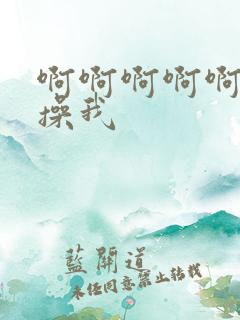 啊啊啊啊啊
操我
藍開道
未经同意禁止转载